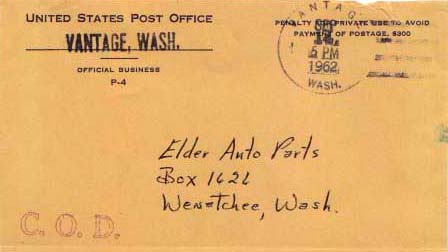 UNITED STATES POST OFFICE
VANTAGE, WASH.
OFFICIAL BUSINESS
P-4
PENALTY FOR PRIVATE USE TO AVOID
PAYMENT OF POSTAGE, $300
VANTAGE
5 PM
1962
WASH.
Elder Auto Parts
Box 1626
Wenatchee, Wash.
C.O.D.